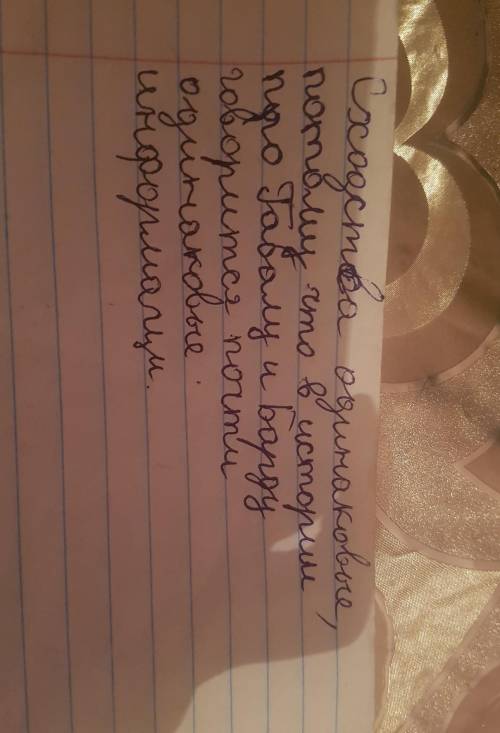 Сходства одинаковые,
потому что в истории
про Габалу и Барду
говорится почти
одинаковые.
информации.